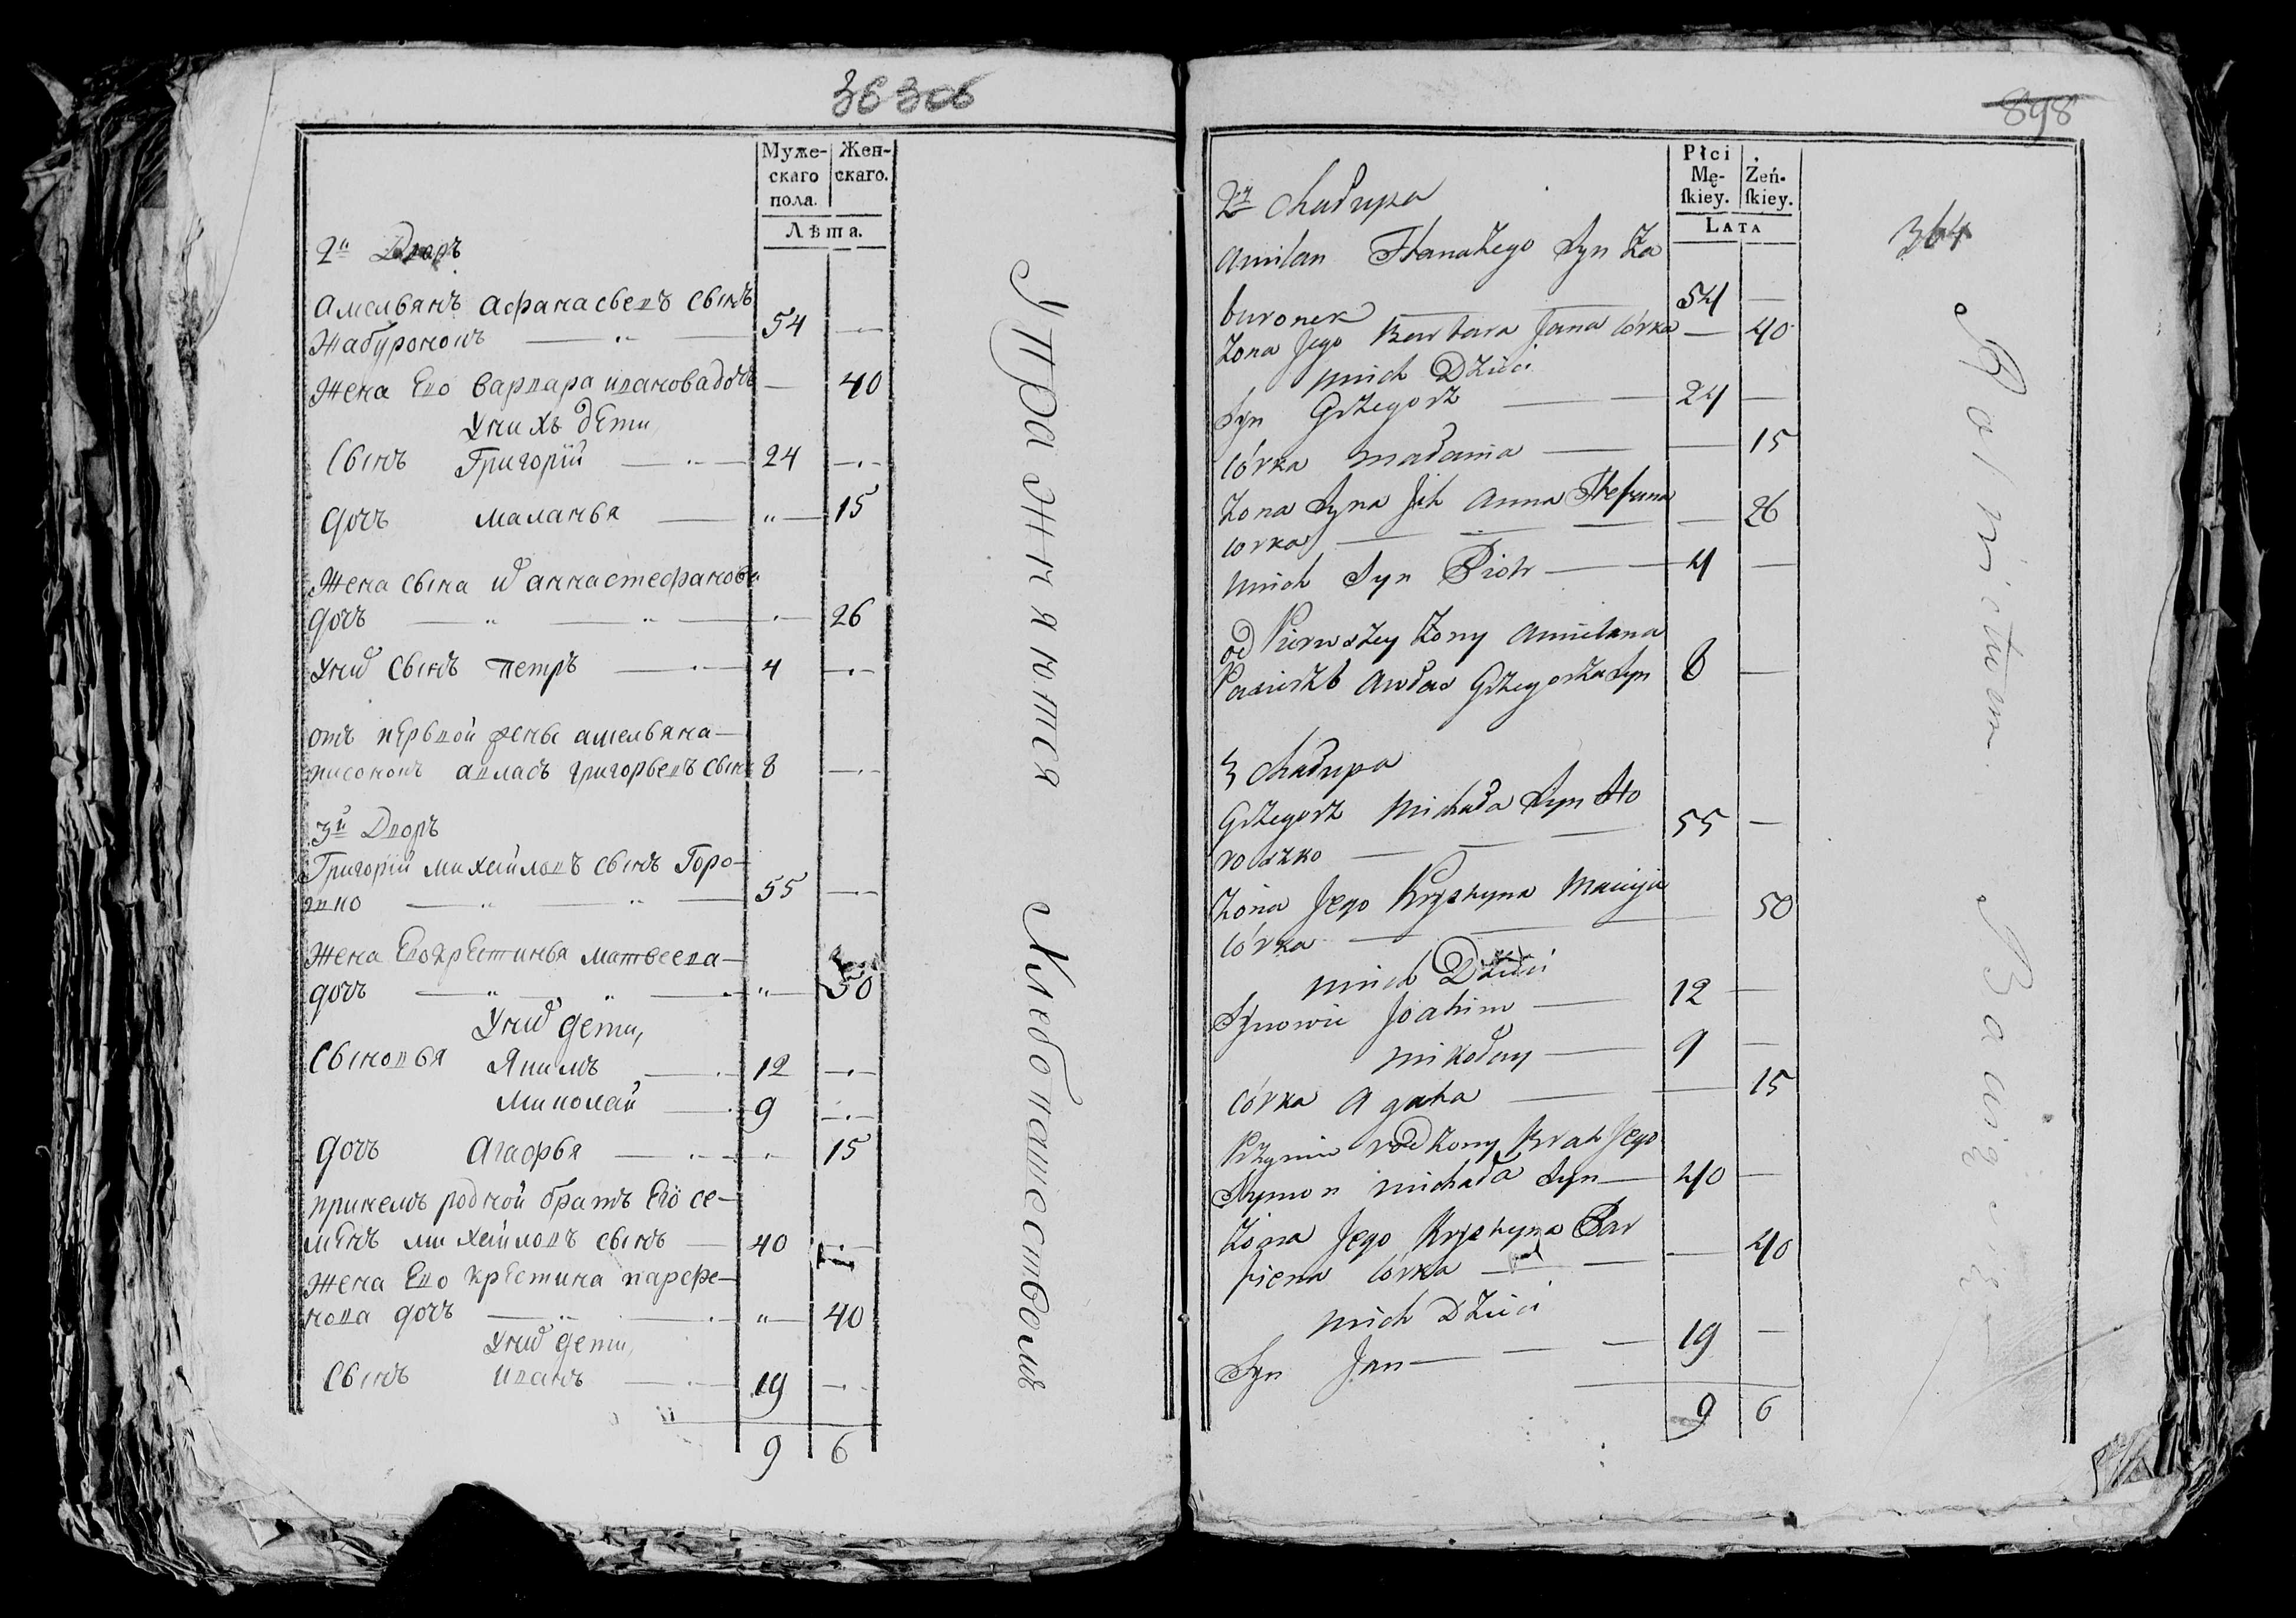 Муже-
скаго
пола.
Жен-
скаго.
Лѣта.
2й Дворъ
Амельянъ Афанасьевъ сынъ
Жабуронокъ 54
Жена Его Варвара иванова дочь — 40
Унихъ дети
Сынъ Григорій 24
дочь маланья 15
Жена сына и анна стефанова
дочь 26
Уних сынъ петръ 4
отъ первой жены амельяна
авласъ григорьевъ сынъ 8
3й Дворъ
Григорій михайловъ сынъ Горо-
шко 55
Жена Его крестинья матвеева
дочь 50
Уних дети,
Сыновья Якимъ 12
Миколай 9
дочь Агафья 15
принемъ родной братъ Его се-
менъ михайловъ сынъ 40
Жена Его крестина парфе-
нова дочь 40
Уних дети,
Сынъ иванъ 19
9 6
Упражняются Хлебопашествомъ
898
364
Płci
Mę-
ſkiey.
Żeń-
ſkiey.
LATA
2a Chałupa
Amilan Athanazego Syn Ża
buronek 54 —
Żona Jego Barbara Jana córka — 40
unich Dzieci
Syn Grzegorz 24 —
córka Małania — 15
Żona Syna Jch Anna Stefana
corka — 26
unich Syn Piotr 4 —
od Pierwszey Żony Amielana
Pasierzb Awłas Grzegorza Syn 8 —
3 Chałupa
Grzegorz Michała Syn Ho
roszko 55 —
Żona Jego Krystyna Macieja
córka 50
unich Dzieci
Synowie Joachim 12 —
Mikołay 9 —
córka Agata — 15
Przynim rodzony Brat Jego
Szymon Michała Syn 40 —
Żona Jego Krystyna Par
fiena córka — 40
unich Dzieci
Syn Jan 19 —
9 6
Rolnictwem Bawią się